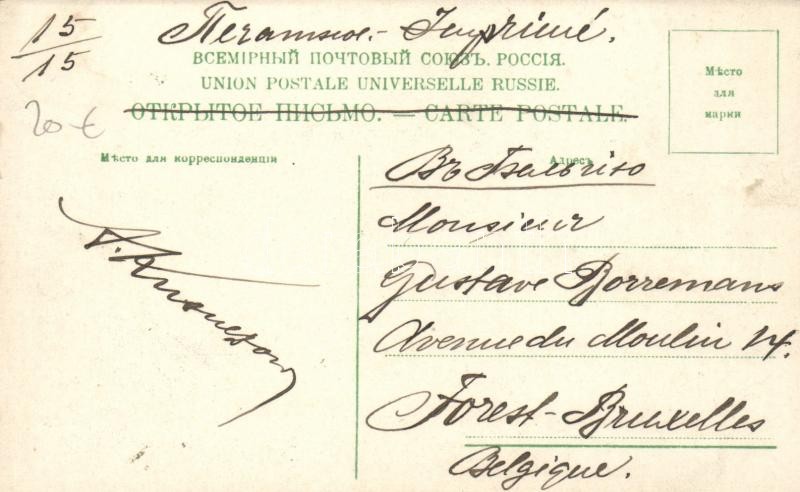 15/15
Печатное.- Imprimé.
ВСЕМІРНЫЙ ПОЧТОВЫЙ СОЮЗЪ. РОССІЯ.
UNION POSTALE UNIVERSELLE RUSSIE.
20 €
ОТКРЫТОЕ ПИСЬМО. — CARTE POSTALE.
Мѣсто
для
марки
Мѣсто для корреспонденціи
Адресъ
Въ Бельгію
Monsieur
Gustave Borremans
Avenue du Moulin 14.
Forest-Bruxelles
Belgique.